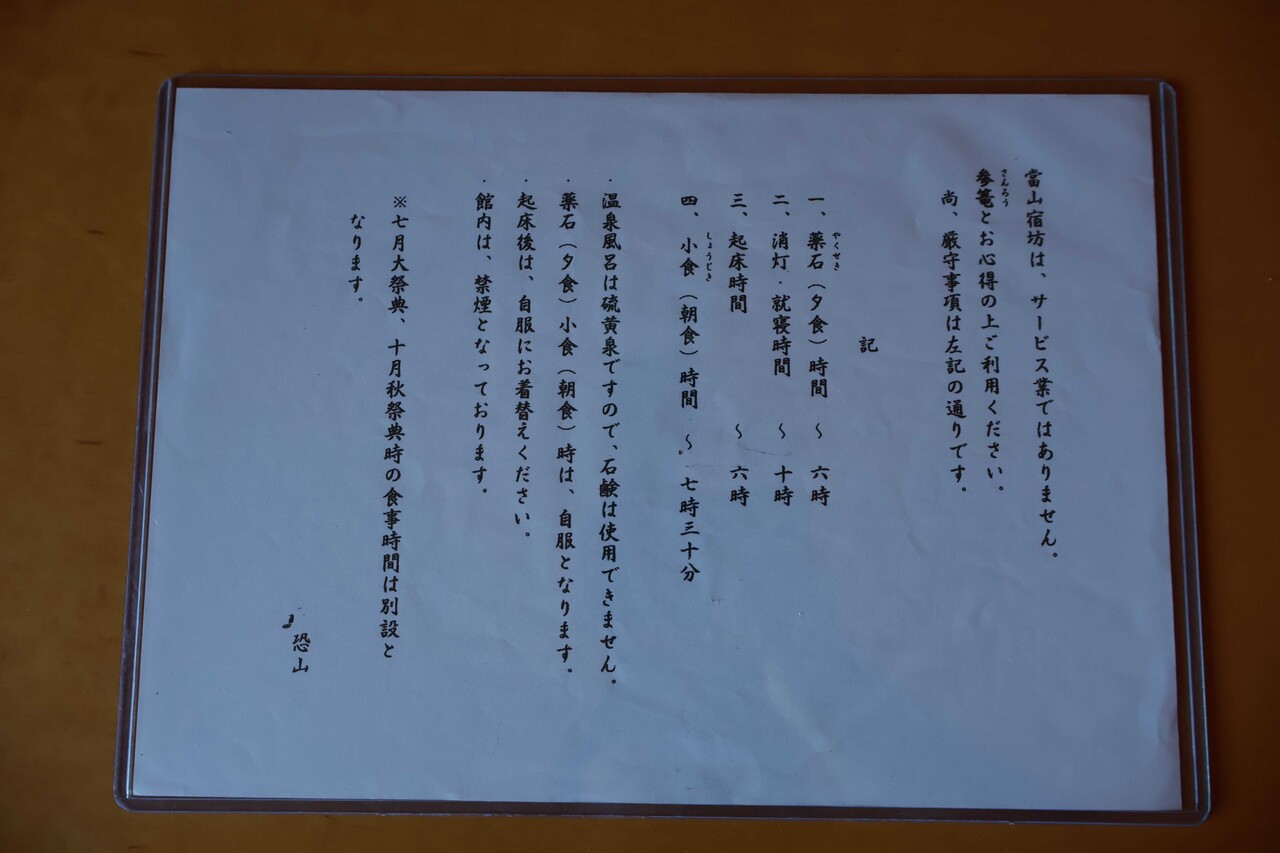 當山宿坊は、サービス業ではありません。
参篭とお心得の上ご利用ください。
さんろう
尚、厳守事項は左記の通りです。
記
一、薬石（夕食）時間　～　六時
やくせき
二、消灯・就寝時間　～　十時
三、起床時間　～　六時
四、小食（朝食）時間　～　七時三十分
しょうじき
・温泉風呂は硫黄泉ですので、石鹸は使用できません。
・薬石（夕食）小食（朝食）時は、自服となります。
・起床後は、自服にお着替えください。
・館内は、禁煙となっております。
※七月大祭典、十月秋祭典時の食事時間は別設と
なります。
恐山